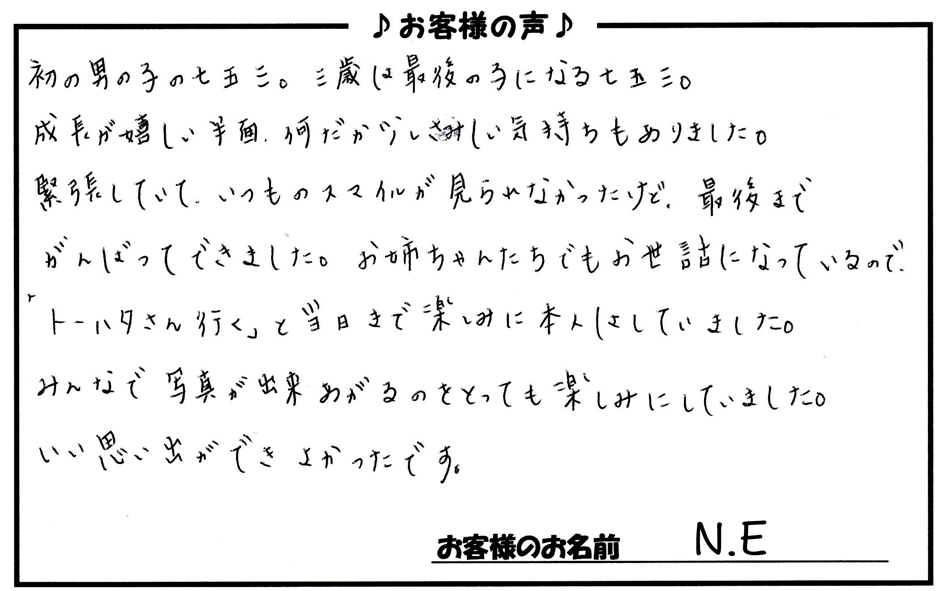 ♪お客様の声♪
初の男の子の七五三。三歳は最後の子になる七五三。
成長が嬉しい半面、何だか少しさみしい気持ちもありました。
緊張していて、いつものスマイルが見られなかったけど、最後まで
がんばってできました。お姉ちゃんたちでもお世話になっているので、
「トーハタさん行く」と当日まで楽しみに本人はしていました。
みんなで写真が出来あがるのをとっても楽しみにしていました。
いい思い出ができよかったです。
お客様のお名前 N.E